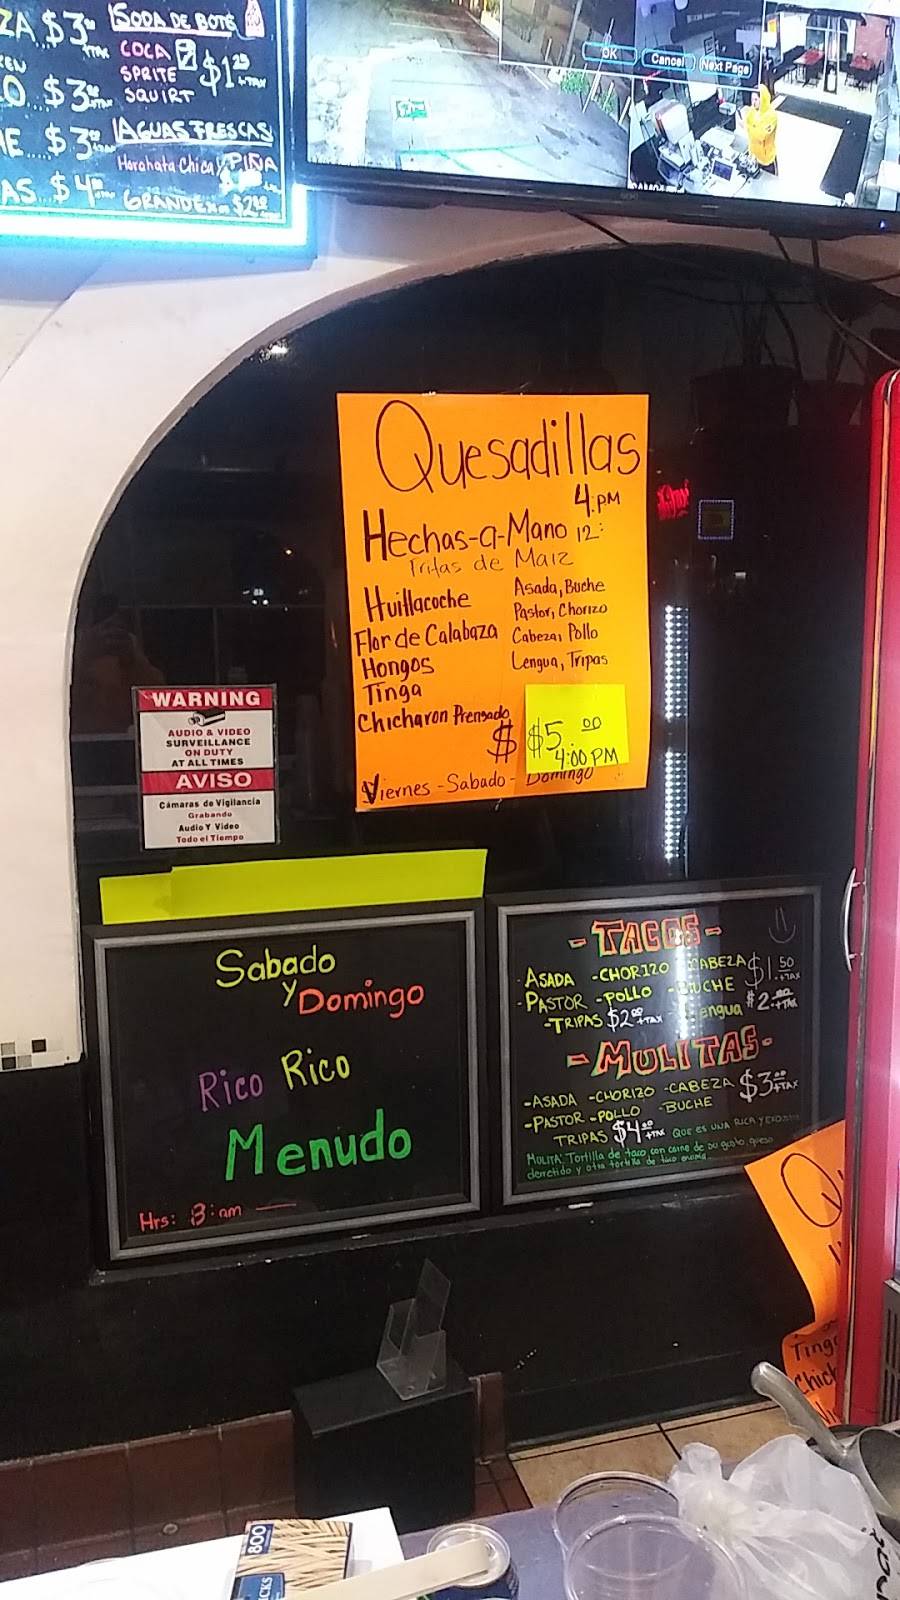 ZA $3.00 +TAX
O...$3.00 +TAX
E....$3.00
AS $4.00 +TAX
SODA DE BOTE
COCA
SPRITE
SQUIRT
$1.25 +TAX
AGUAS FRESCAS
Horchata Chica y PIÑA
GRANDE... $2.50
OK Cancel Next Page
Quesadillas
4:PM
Hechas-a-Mano 12:
Fritas de Maiz
Huitlacoche
Flor de Calabaza
Hongos
Tinga
Chicharon Prensado
Asada, Buche
Pastor, Chorizo
Cabeza, Pollo
Lengua, Tripas
$ $5.00
4:00 PM
Viernes - Sabado - Domingo
WARNING
AUDIO & VIDEO
SURVEILLANCE
ON DUTY
AT ALL TIMES
AVISO
Cámaras de Vigilancia
Grabando
Audio Y Video
Todo el Tiempo
Sabado
y Domingo
Rico Rico
Menudo
Hrs: 8:am —
-TACOS-
- ASADA -CHORIZO -CABEZA $1.50 +TAX
-PASTOR -POLLO -BUCHE
-TRIPAS $2.00 +TAX -Lengua $2.00 +TAX
-MULITAS-
-ASADA -CHORIZO -CABEZA $3.00 +TAX
-PASTOR -POLLO -BUCHE
TRIPAS $4.00 +TAX QUE ES UNA RICA Y
MULITA: Tortilla de taco con carne de su gusto, queso
derretido y otra tortilla de taco encima
Qu
Ting
Chich
800
CKS